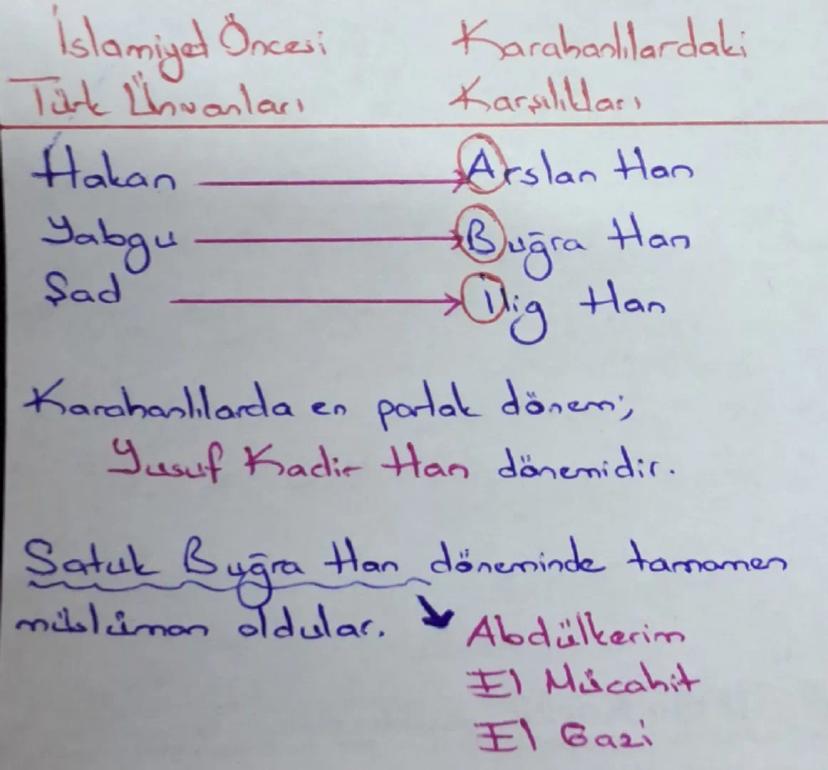 İslamiyet Öncesi Karahanlılardaki
Türk Ünvanları Karşılıkları
Hakan → Arslan Han
Yabgu → Buğra Han
Şad → İlig Han
Karahanlılarda en parlak dönem;
Yusuf Kadir Han dönemidir.
Satuk Buğra Han döneminde tamamen
müslüman oldular. ↘ Abdülkerim
El Mücahit
El Gazi